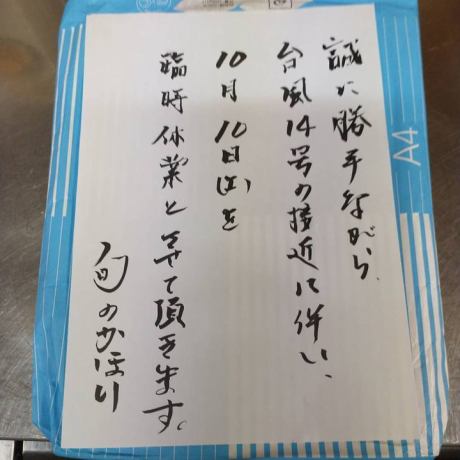 誠に勝手ながら、
台風14号の接近に伴い、
10月10日(土)を
臨時休業とさせて頂きます。
旬のかほり
A4